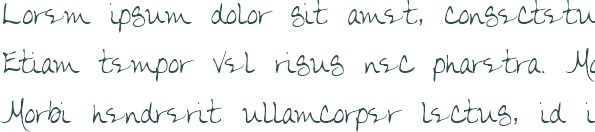 Lorem ipsum dolor sit amet, consectetu
Etiam tempor vel risus nec pharetra. Mo
Morbi hendrerit ullamcorper lectus, id i